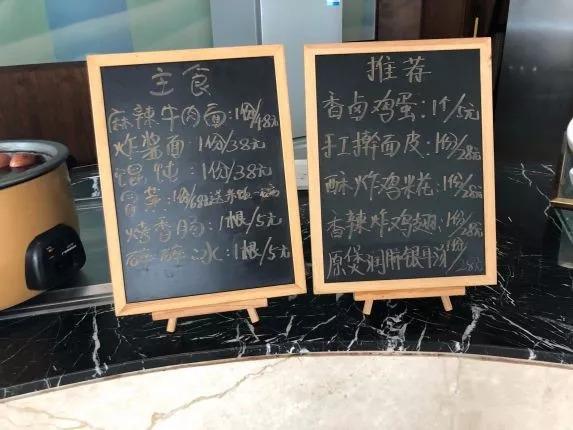 主食
麻辣牛肉面:1份/48元
炸酱面:1份/38元
馄饨:1份/38元
冒菜:1份/68元送米饭一碗
烤香肠:1根/5元
冰:1根/5元
推荐
香卤鸡蛋:1个/5元
手工擀面皮:1份/28元
酥炸鸡米花:1份/28元
香辣炸鸡翅:1份/28元
原煲润肺银耳汤1份/28元